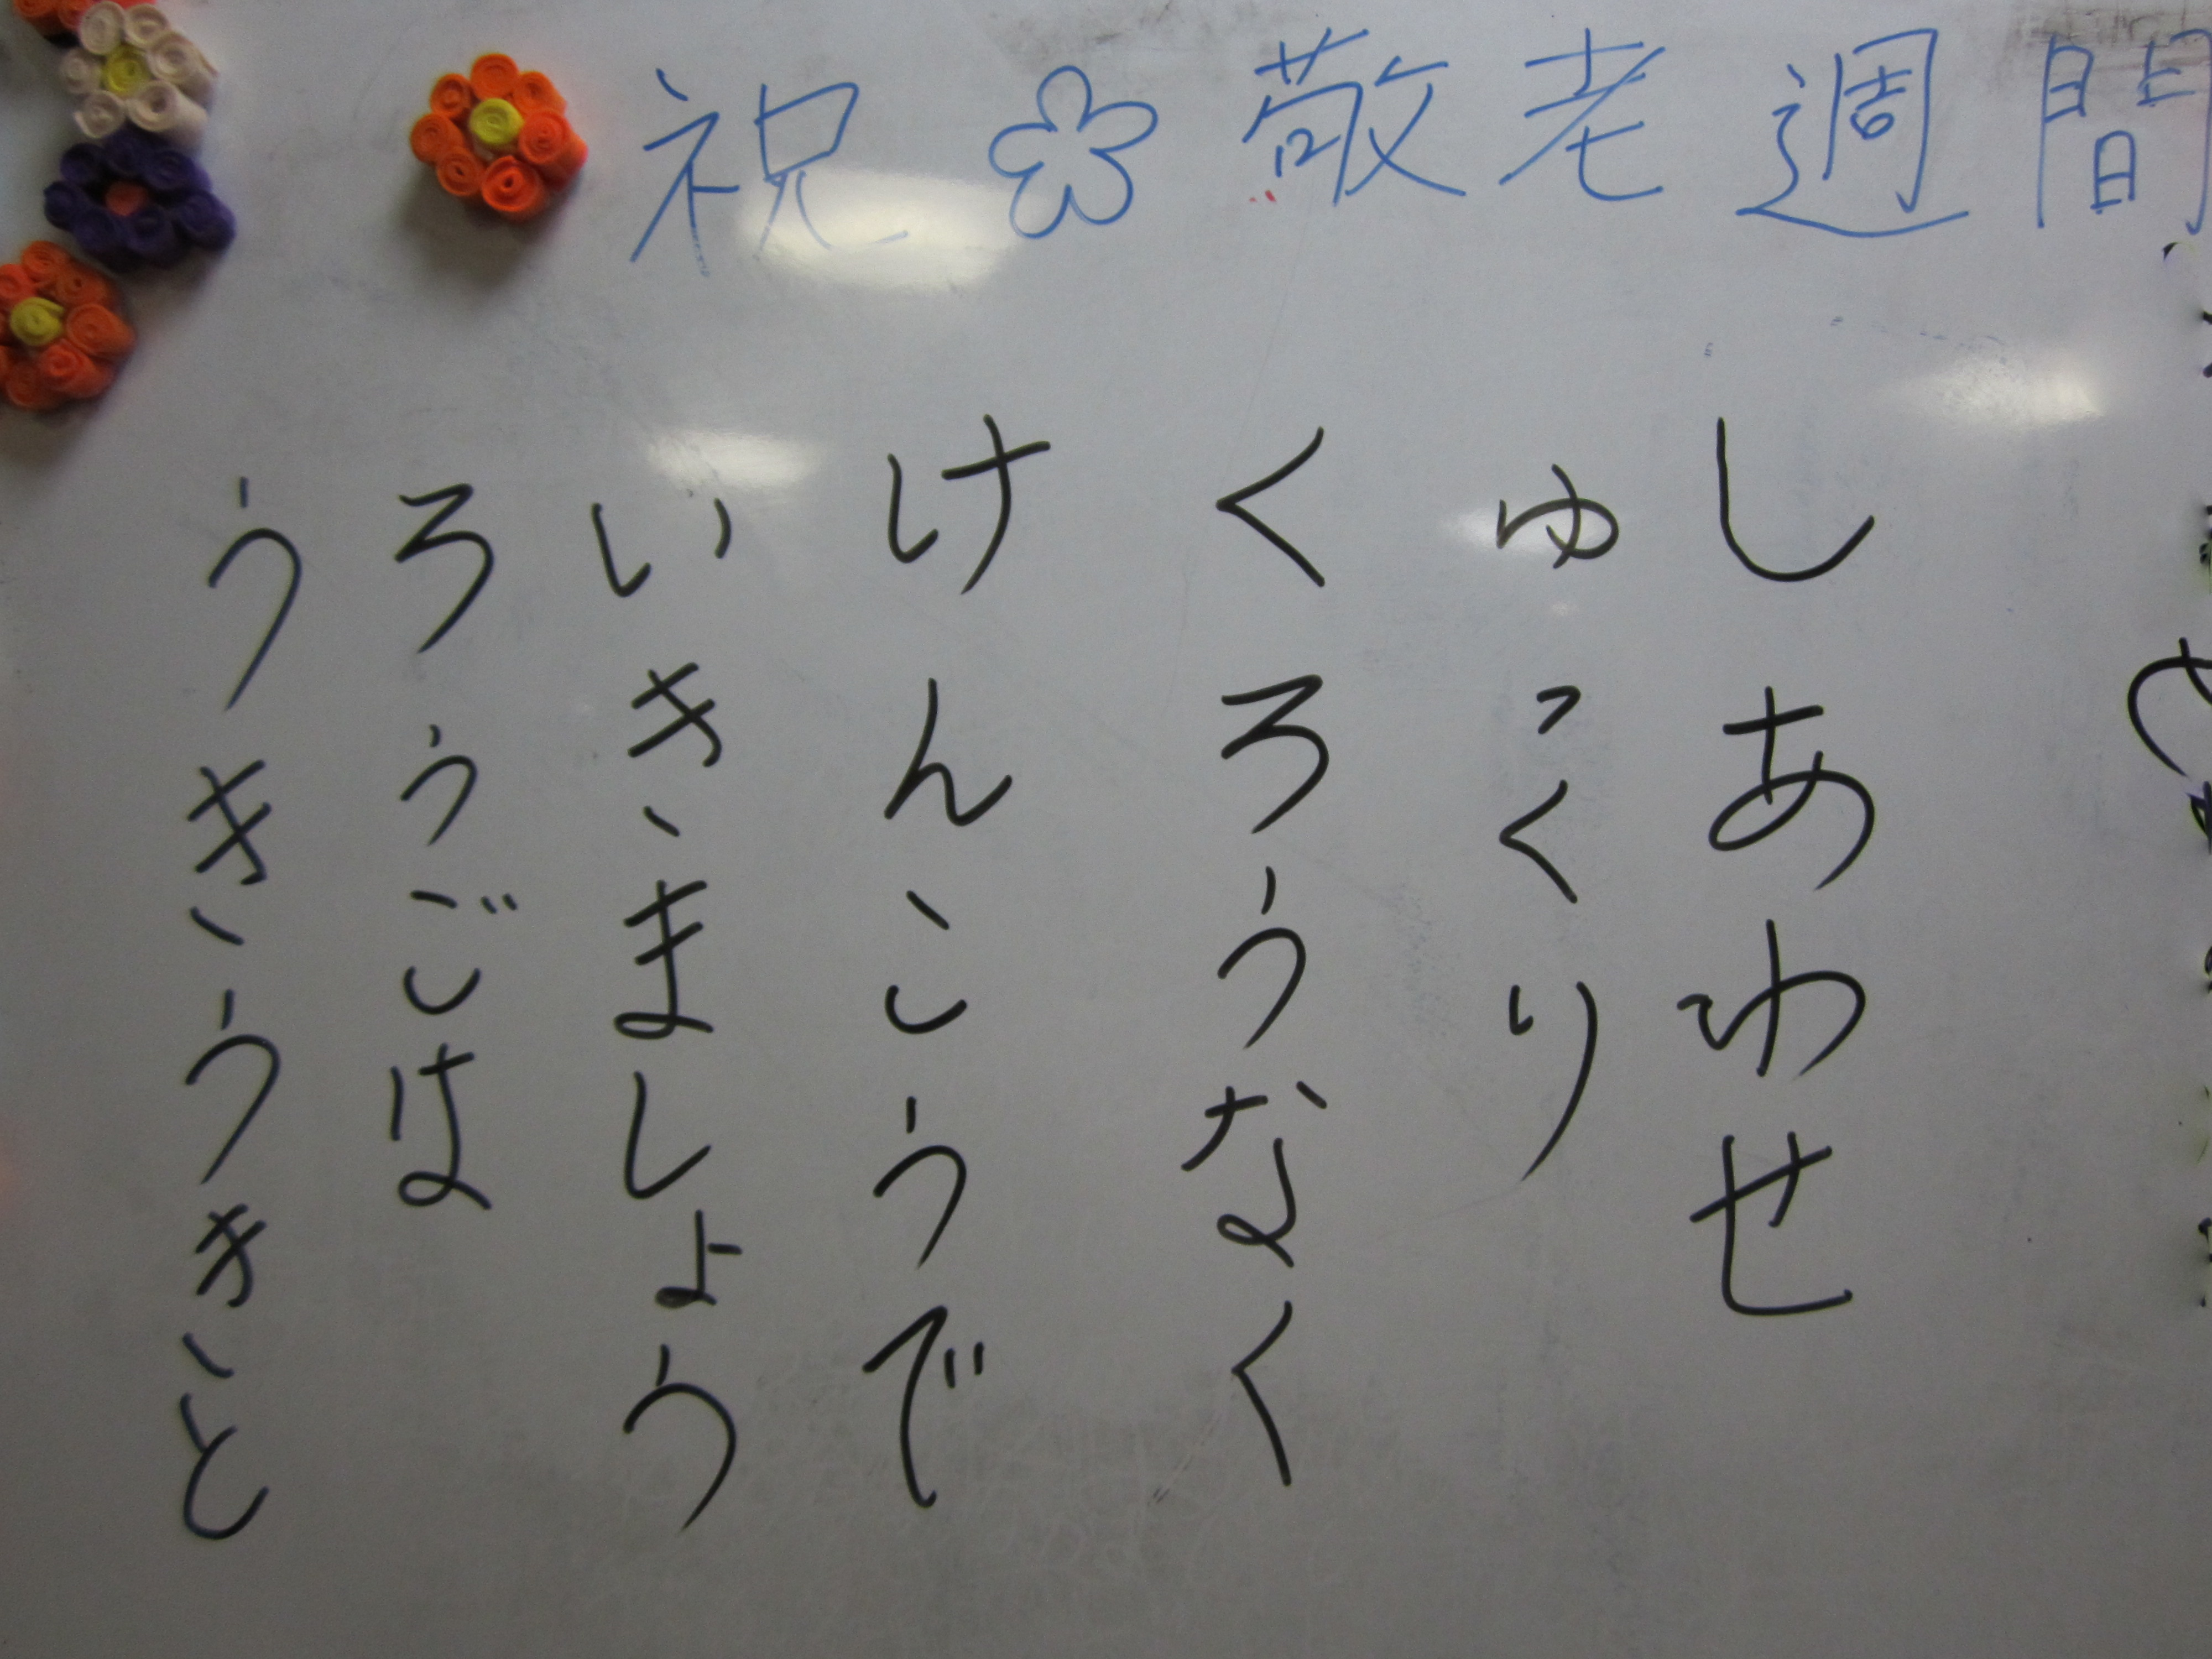 祝 敬老週間
しあわせ
ゆっくり
くろうなく
けんこうで
いきましょう
ろうごは
うきうきと